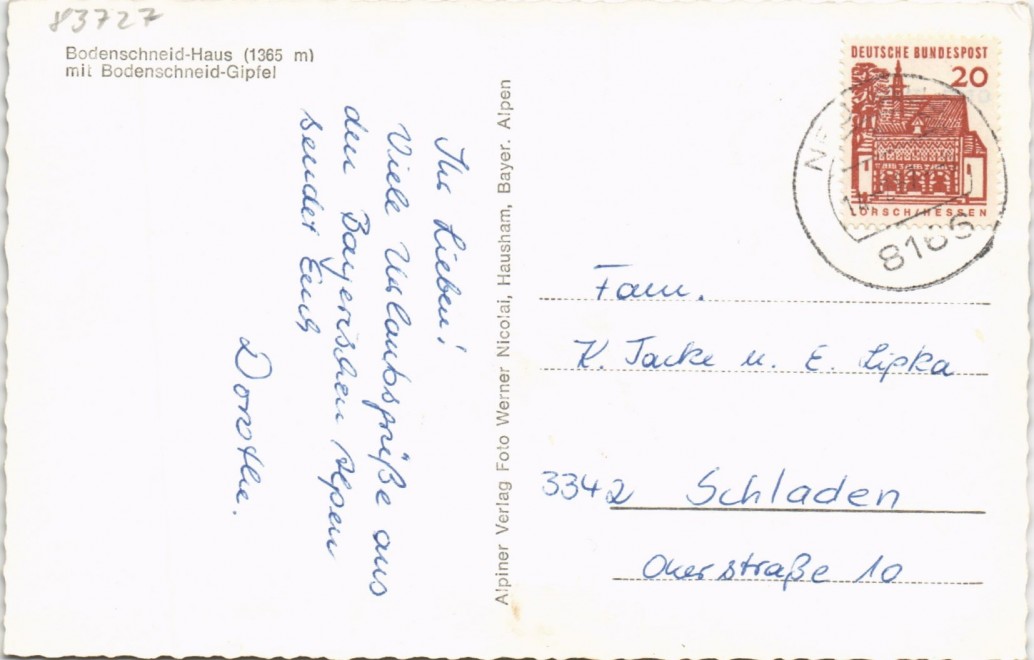 83727
Bodenschneid-Haus (1365 m)
mit Bodenschneid-Gipfel
Ihr Lieben!
Viele Urlaubsgrüße aus
den Bayerischen Alpen
sendet Euch
Dorothe.
Alpiner Verlag Foto Werner Nicolai, Hausham, Bayer. Alpen
DEUTSCHE BUNDESPOST
20
LORSCH/HESSEN
8166
Fam.
K. Jacke u. E. Lipka
3342 Schladen
Okerstraße 10